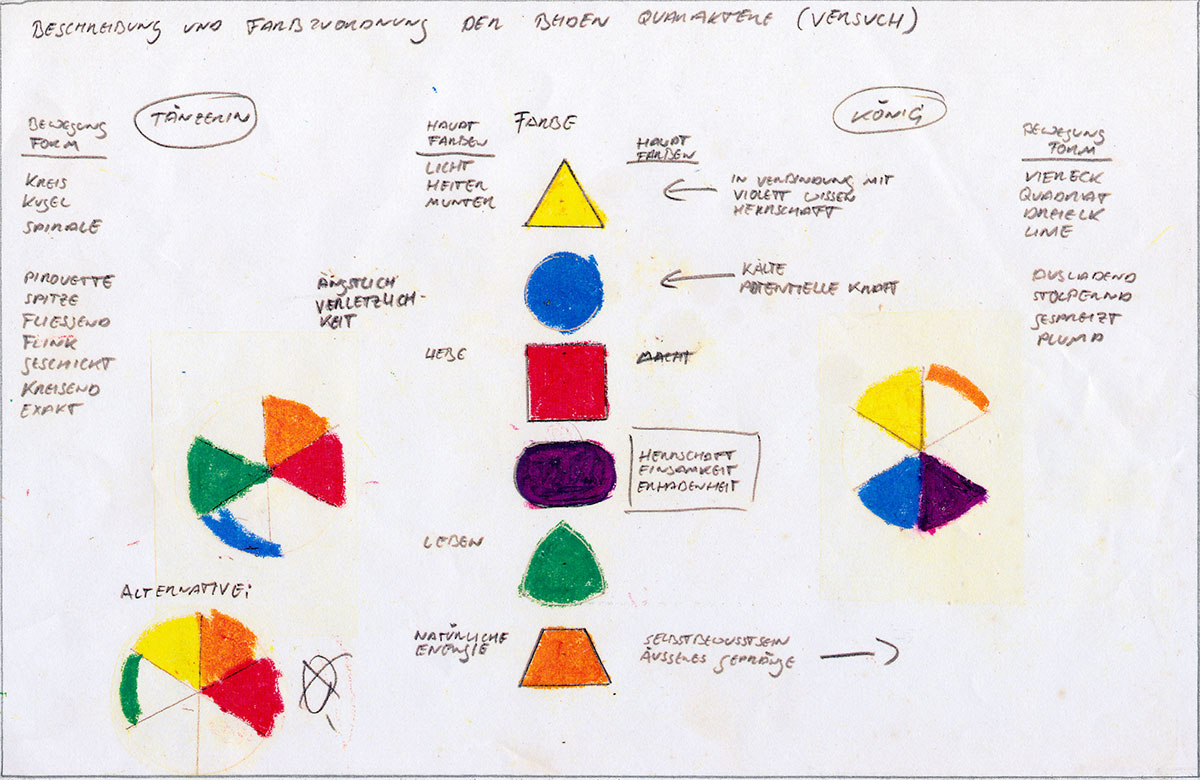 BESCHREIBUNG UND FARBZUORDNUNG DER BEIDEN QUARAKTERE (VERSUCH)
TÄNZERIN
BEWEGUNG
FORM
KREIS
KUGEL
SPIRALE
PIROUETTE
SPITZE
FLIESSEND
FLINK
GESCHICKT
KREISEND
EXAKT
ÄNGSTLICH
VERLETZLICH-
KEIT
HAUPT
FARBEN
LICHT
HEITER
MUNTER
LIEBE
LEBEN
NATÜRLICHE
ENERGIE
FARBE
HAUPT
FARBEN
IN VERBINDUNG MIT
VIOLETT WISSEN
HERRSCHAFT
KÄLTE
POTENTIELLE KRAFT
MACHT
HERRSCHAFT
EINSAMKEIT
ERHABENHEIT
SELBSTBEWUSSTSEIN
ÄUSSERES GEPRÄNGE
KÖNIG
BEWEGUNG
FORM
VIERECK
QUADRAT
DREIECK
LINIE
AUSLADEND
STOLPERND
GESPREIZT
PLUMP
ALTERNATIVE: